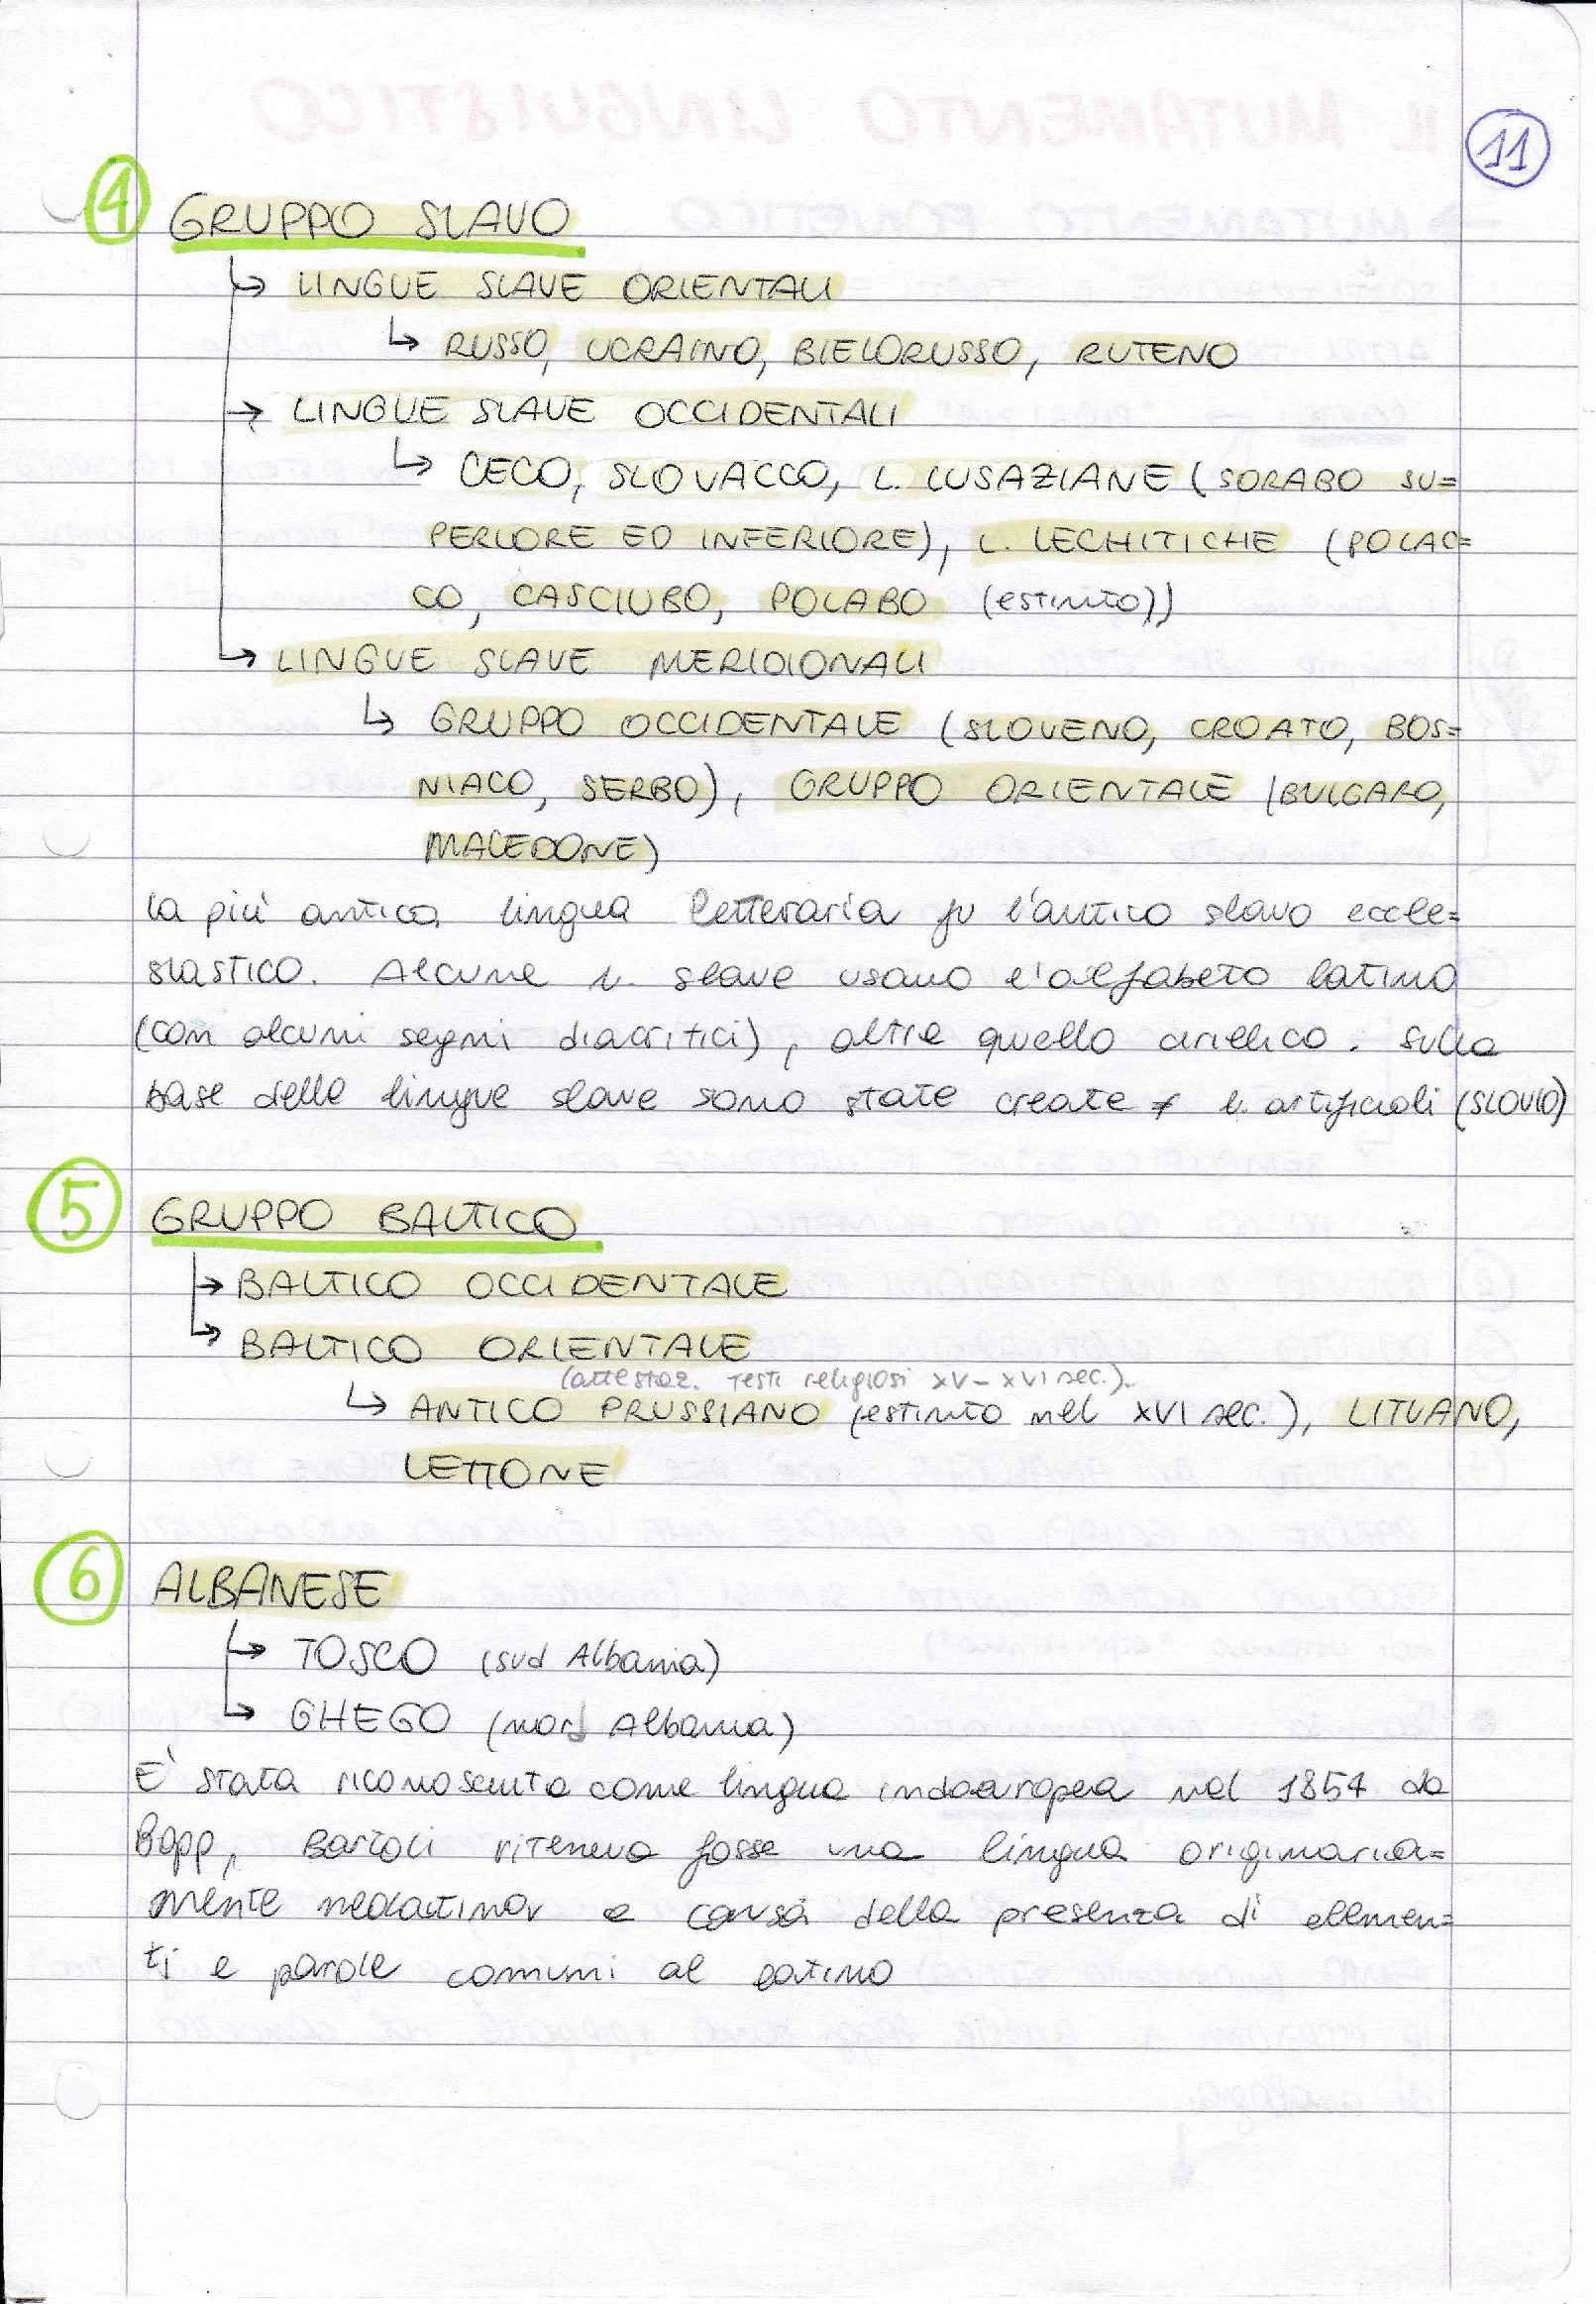 11
4 GRUPPO SLAVO
↳ LINGUE SLAVE ORIENTALI
↳ RUSSO, UCRAINO, BIELORUSSO, RUTENO
→ LINGUE SLAVE OCCIDENTALI
↳ CECO, SLOVACCO, L. LUSAZIANE (SORABO SU=
PERIORE ED INFERIORE), L. LECHITICHE (POLAC=
CO, CASCIUBO, POLABO (estinto))
↳ LINGUE SLAVE MERIDIONALI
↳ GRUPPO OCCIDENTALE (SLOVENO, CROATO, BOS=
NIACO, SERBO), GRUPPO ORIENTALE (BULGARO,
MACEDONE)
la più antica lingua letteraria fu l'antico slavo eccle=
siastico. Alcune l. slave usano l'alfabeto latino
(con alcuni segni diacritici), altre quello cirillico. Sulla
base delle lingue slave sono state create ≠ l. artificiali (SLOVIO)
5 GRUPPO BALTICO
↳ BALTICO OCCIDENTALE
↳ BALTICO ORIENTALE
(attestaz. testi religiosi XV-XVI sec.)
↳ ANTICO PRUSSIANO (estinto nel XVI sec.), LITUANO,
LETTONE
6 ALBANESE
↳ TOSCO (sud Albania)
↳ GHEGO (nord Albania)
E' stata riconosciuta come lingua indoeuropea nel 1854 da
Bopp, Bartoli riteneva fosse una lingua originaria=
mente neolatina a causa della presenza di elemen=
ti e parole comuni al latino